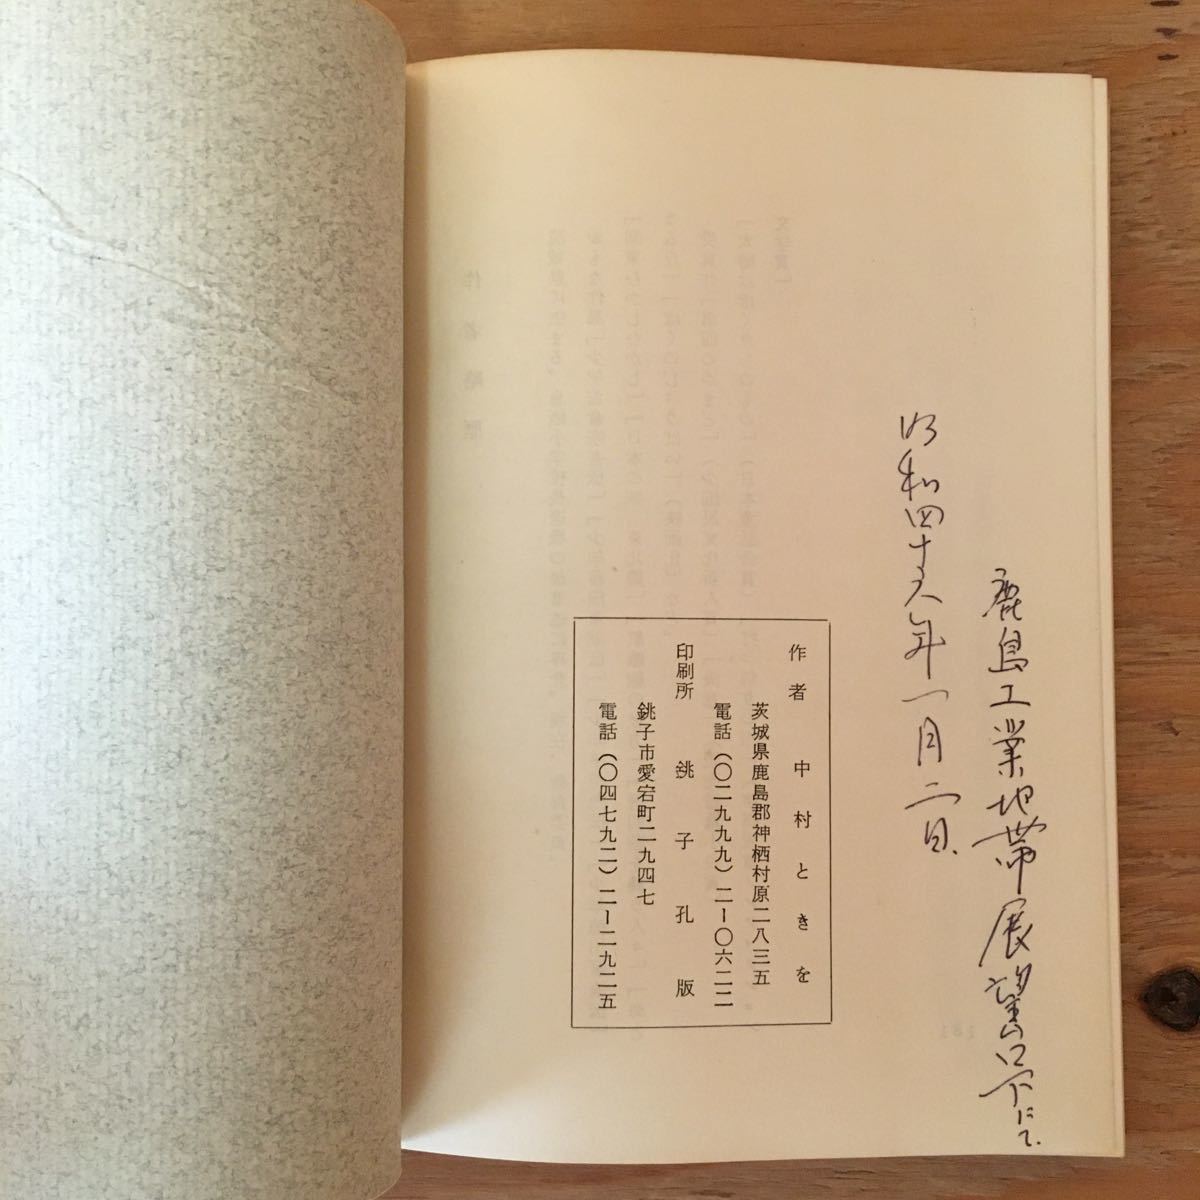 鹿島工業地帯展望台下にて.
昭和四十六年一月二日.
作者 中村ときを
茨城県鹿島郡神栖村原二八三五
電話(〇二九九九)二ー〇六二二
印刷所 銚子孔版
銚子市愛宕町二九四七
電話(〇四七九二)二ー二九二五